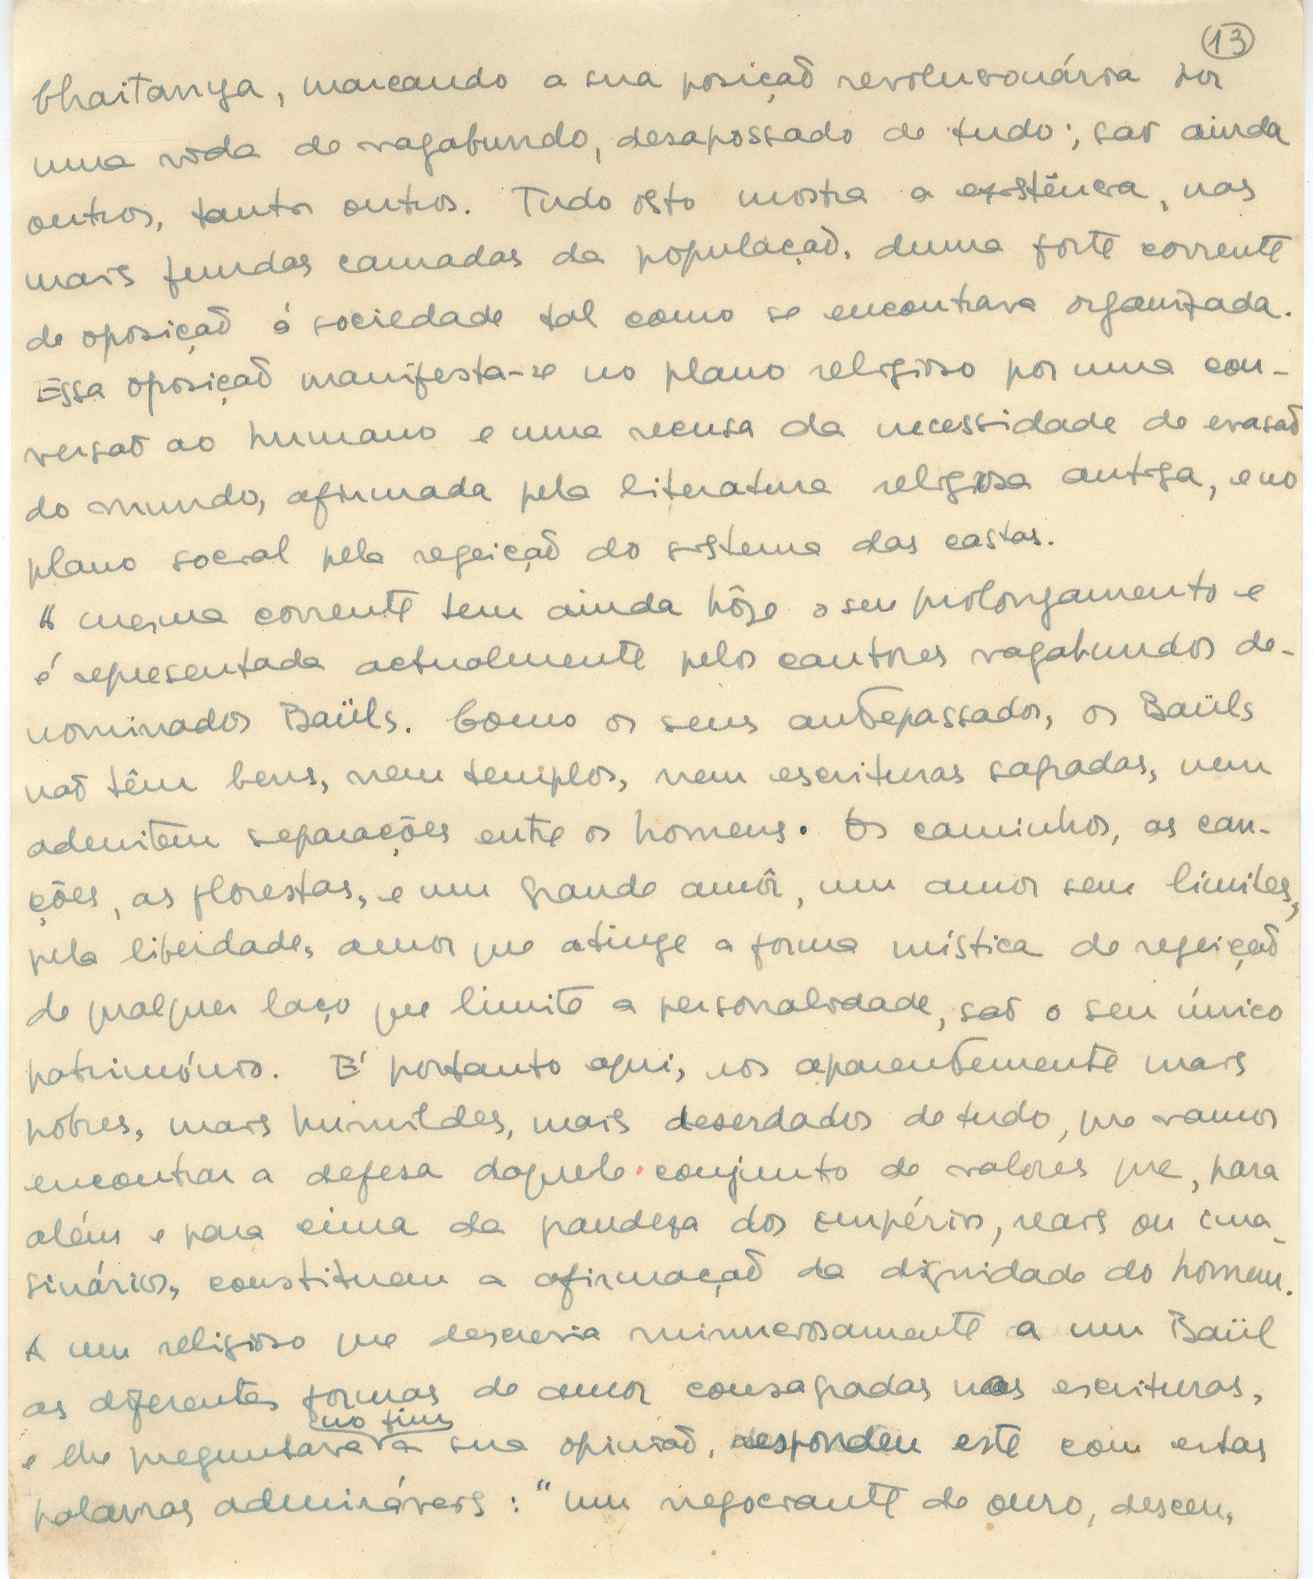 13
Chaitanya, marcando a sua posição revolucionária por
uma vida de vagabundo, desapossado de tudo; são ainda
outros, tantos outros. Tudo isto mostra a existência, nas
mais fundas camadas da população, duma forte corrente
de oposição á sociedade tal como se encontrava organizada.
Essa oposição manifesta-se no plano religioso por uma con-
versão ao humano e uma recusa da necessidade de evasão
do mundo, afirmada pela literatura religiosa antiga, e no
plano social pela regeição do sistema das castas.
A mesma corrente tem ainda hôje o seu prolongamento e
é representada actualmente pelos cantores vagabundos de-
nominados Baüls. Como os seus antepassados, os Baüls
não têm bens, nem templos, nem escrituras sagradas, nem
admitem separações entre os homens. Os caminhos, as can-
ções, as florestas, e um grande amôr, um amor sem limites,
pela liberdade, amor que atinge a forma mística de regeição
de qualquer laço que limite a personalidade, são o seu único
património. É portanto aqui, nos aparentemente mais
pobres, mais humildes, mais deserdados de tudo, que vamos
encontrar a defesa daquele conjunto de valores que, para
além e para cima da grandeza dos impérios, reais ou ima-
ginários, constituem a afirmação da dignidade do homem.
A um religioso que descrevia minuciosamente a um Baül
as diferentes formas de amor consagradas nas escrituras,
no fim
e lhe preguntava a sua opinião, respondeu este com estas
palavras admiráveis: "um negociante de ouro, desceu,